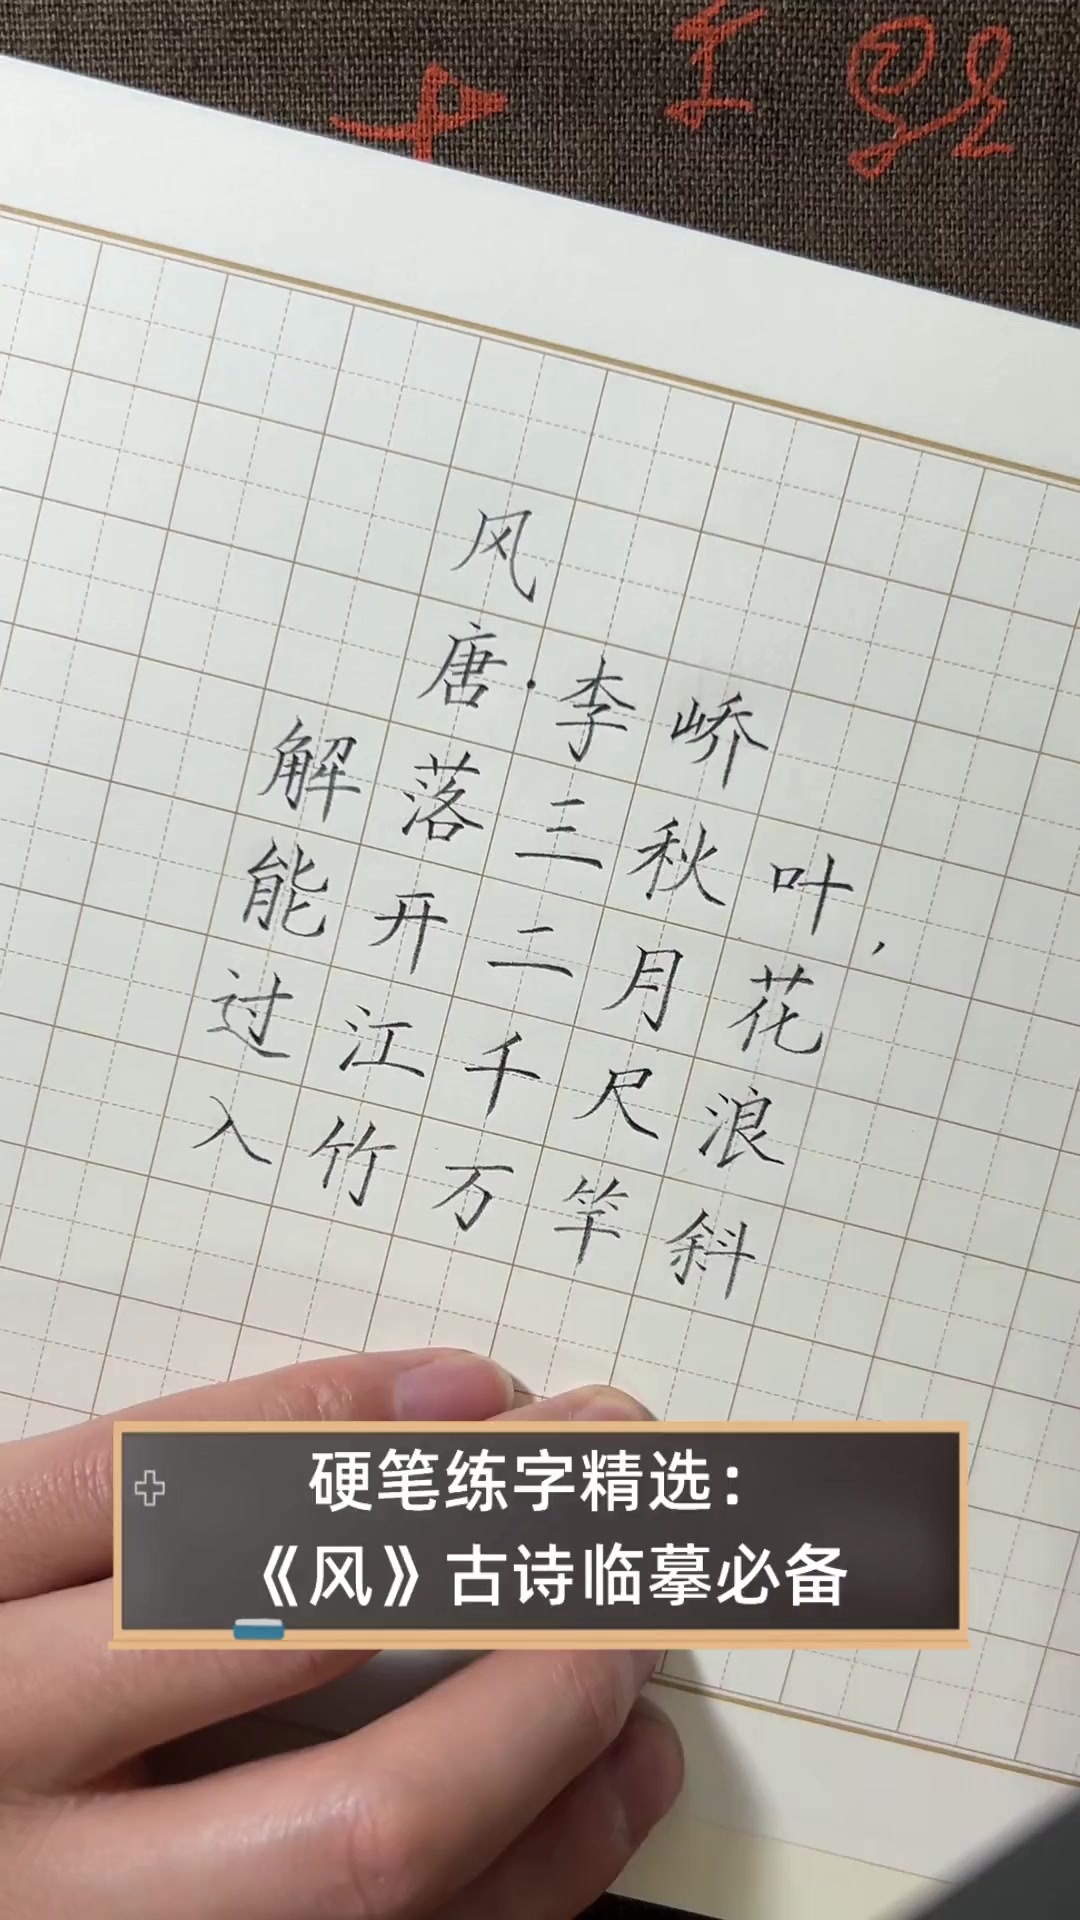 风
唐·李峤
解落三秋叶，
能开二月花
过江千尺浪
入竹万竿斜
硬笔练字精选：
《风》古诗临摹必备